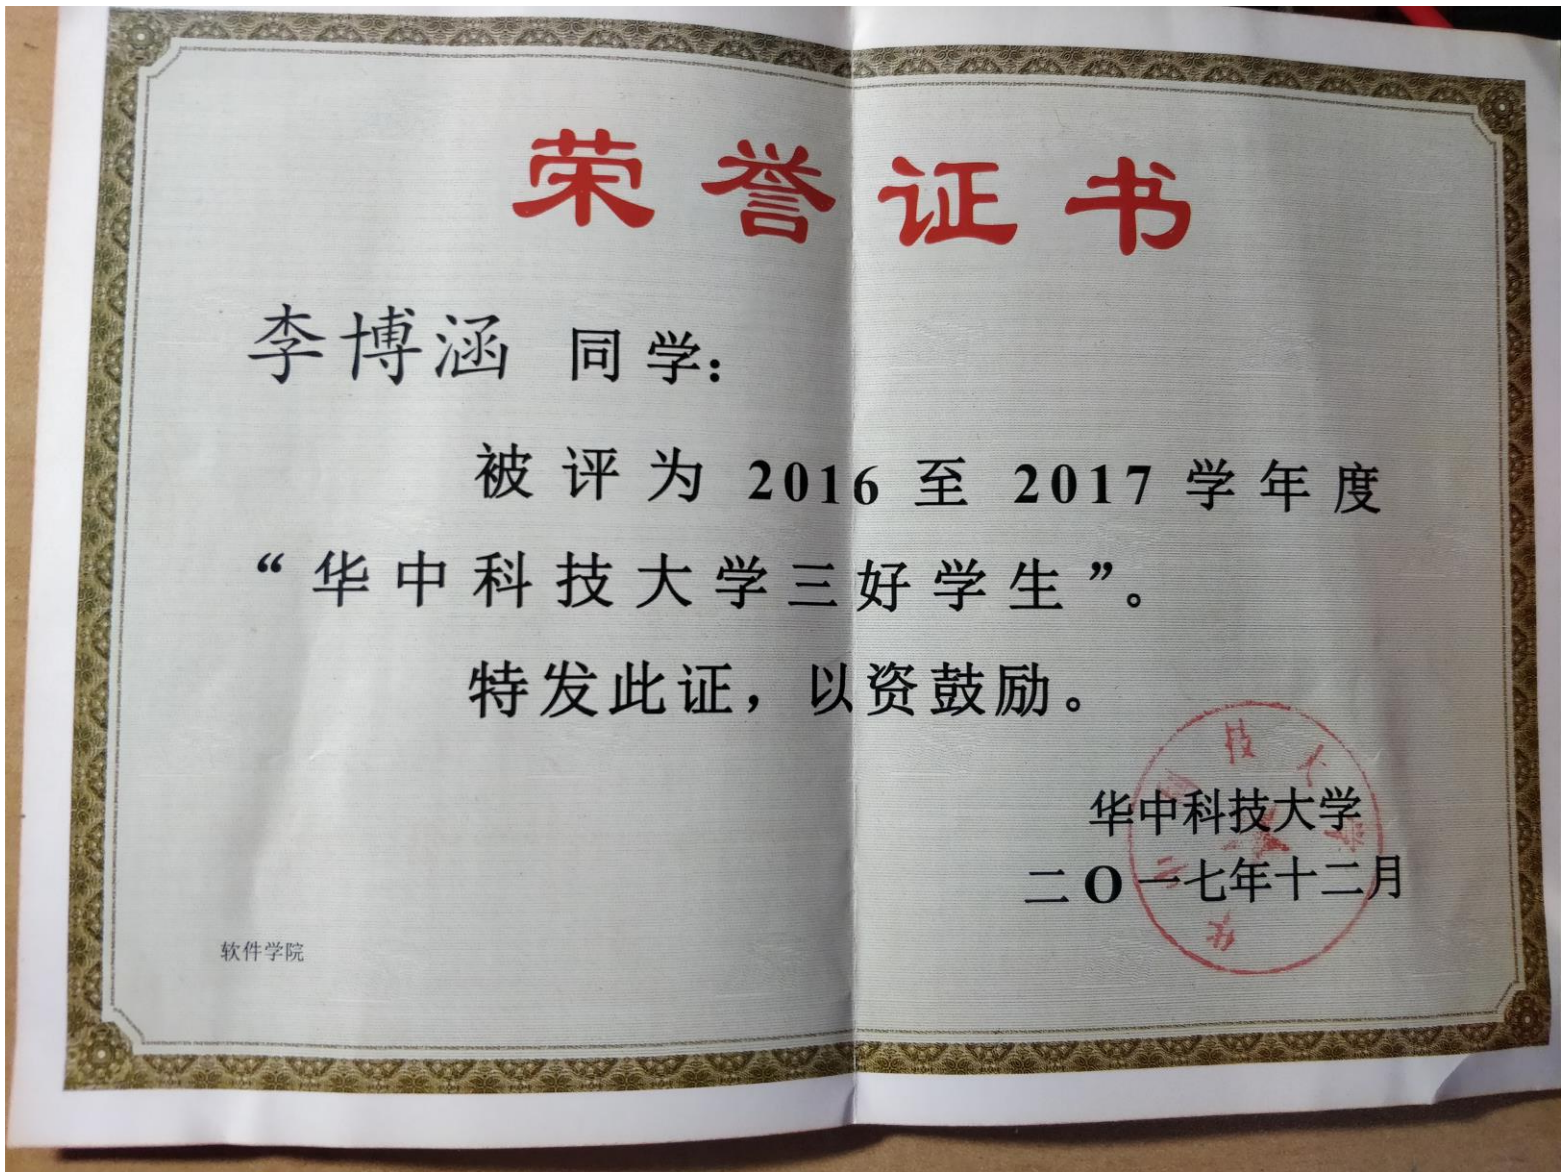 荣誉证书
李博涵 同学：
被评为 2016 至 2017 学年度
“华中科技大学三好学生”。
特发此证，以资鼓励。
华中科技大学
二O一七年十二月
华中科技大学
软件学院